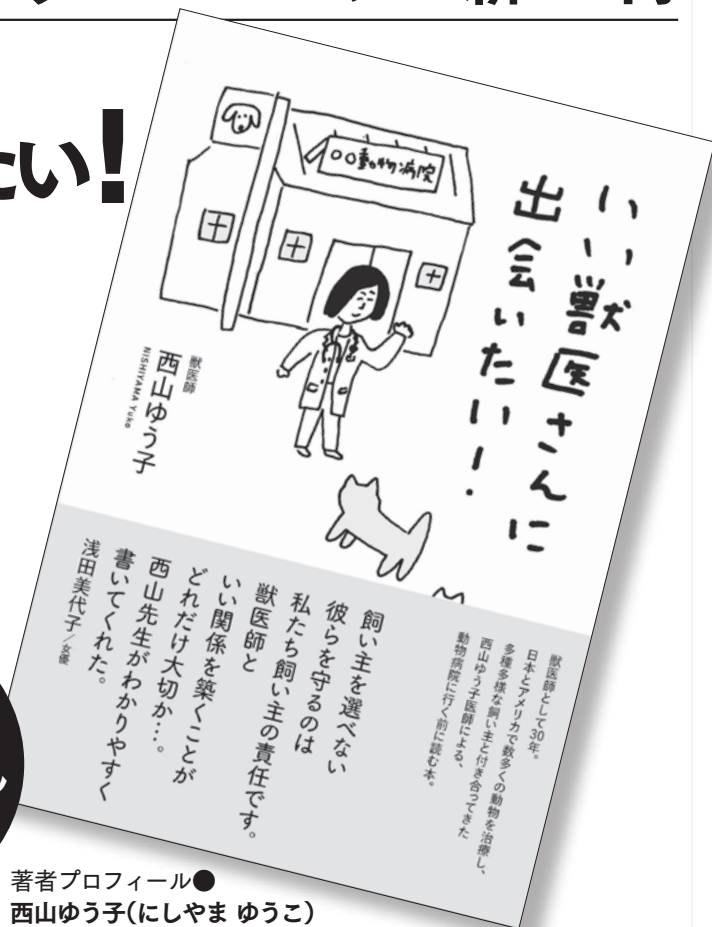 たい!
○○動物病院
いい獣医さんに
出会いたい!
獣医師
西山ゆう子
NISHIYAMA Yuko
獣医師として30年。
日本とアメリカで数多くの動物を治療し、
多種多様な飼い主と付き合ってきた
西山ゆう子医師による、
動物病院に行く前に読む本。
飼い主を選べない
彼らを守るのは
私たち飼い主の責任です。
獣医師と
いい関係を築くことが
どれだけ大切か…。
西山先生がわかりやすく
書いてくれた。
浅田美代子/女優
著者プロフィール●
西山ゆう子(にしやま ゆうこ)